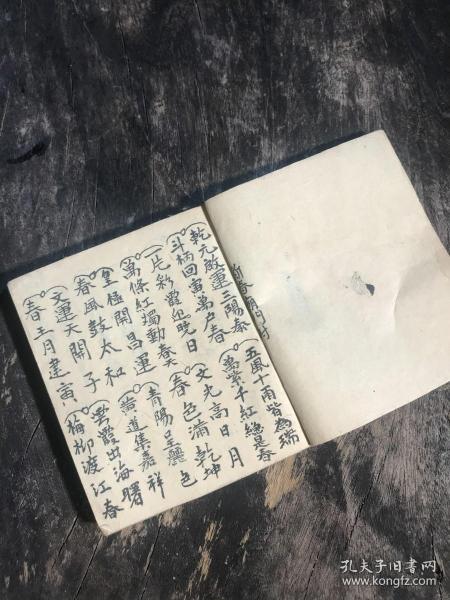 乾元啟運三陽泰
五風十雨皆為瑞
斗柄回寅萬戶春
萬紫千紅總是春
一片彩霞迎曉日
文光高日月
萬條紅燭動春天
春色滿乾坤
皇極開昌運
青陽呈麗色
春風鼓太和
黃道集嘉祥
文運天開子
雲霞出海曙
春王月建寅
梅柳渡江春
孔夫子旧书网
www.kongfz.com